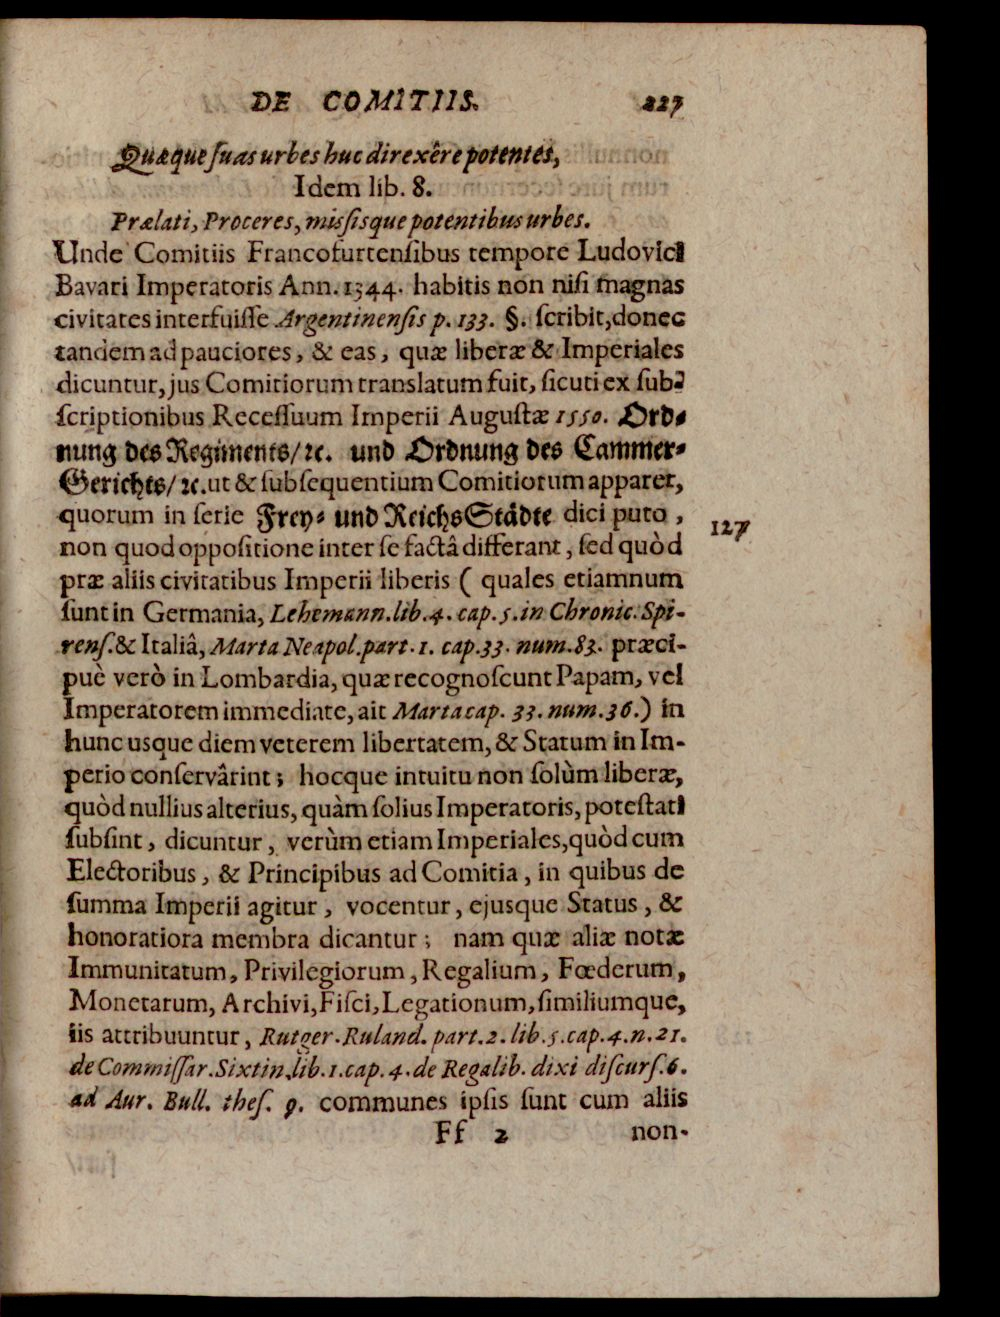 DE COMITIIS. 227
Quæque suas urbes huc direxêre potentes,
Idem lib. 8.
Prælati, Proceres, missisque potentibus urbes.
Unde Comitiis Francofurtensibus tempore Ludovici
Bavari Imperatoris Ann. 1344. habitis non nisi magnas
civitates interfuisse Argentinensis p. 133. §. scribit, donec
tandem ad pauciores, & eas, quæ liberæ & Imperiales
dicuntur, jus Comitiorum translatum fuit, sicuti ex sub-
scriptionibus Recessuum Imperii Augustæ 1550. Ord-
nung des Regiments/ ꝛc. und Ordnung des Cammer-
Gerichts/ ꝛc. ut & subsequentium Comitiorum apparet,
quorum in serie Frey- und ReichsStådte dici puto,
non quod oppositione inter se factâ differant, sed quòd
præ aliis civitatibus Imperii liberis ( quales etiamnum
sunt in Germania, Lehemann. lib. 4. cap. 5. in Chronic. Spi-
rens. & Italiâ, Marta Neapol. part. 1. cap. 33. num. 83. præci-
puè verò in Lombardia, quæ recognoscunt Papam, vel
Imperatorem immediate, ait Marta cap. 33. num. 36.) in
hunc usque diem veterem libertatem, & Statum in Im-
perio conservârint; hocque intuitu non solùm liberæ,
quòd nullius alterius, quàm solius Imperatoris, potestati
subsint, dicuntur, verùm etiam Imperiales, quòd cum
Electoribus, & Principibus ad Comitia, in quibus de
summa Imperii agitur, vocentur, ejusque Status, &
honoratiora membra dicantur; nam quæ aliæ notæ
Immunitatum, Privilegiorum, Regalium, Fœderum,
Monetarum, Archivi, Fisci, Legationum, similiumque,
iis attribuuntur, Rutger. Ruland. part. 2. lib. 5. cap. 4. n. 21.
de Commissar. Sixtin. lib. 1. cap. 4. de Regalib. dixi discurs. 6.
ad Aur. Bull. thes. 9. communes ipsis sunt cum aliis
Ff 2 non-
127